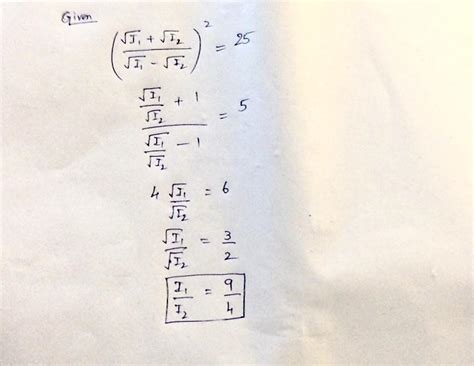 Given
((√I₁ + √I₂)/(√I₁ - √I₂))² = 25
(√I₁/√I₂ + 1)/(√I₁/√I₂ - 1) = 5
4 √I₁/√I₂ = 6
√I₁/√I₂ = 3/2
I₁/I₂ = 9/4